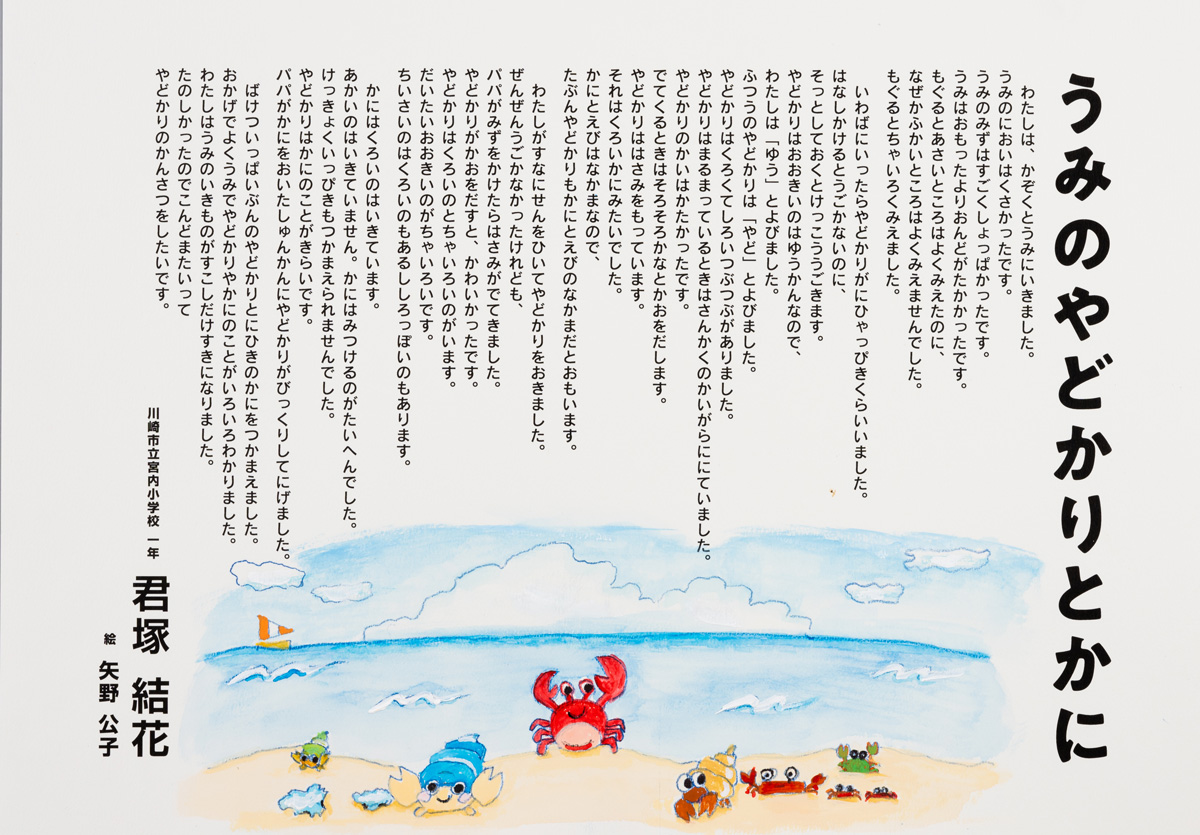 うみのやどかりとかに
わたしは、かぞくとうみにいきました。
うみのにおいはくさかったです。
うみのみずはすごくしょっぱかったです。
うみはおもったよりおんどがたかかったです。
もぐるとあさいところはよくみえたのに、
なぜかふかいところはよくみえませんでした。
もぐるとちゃいろくみえました。
いわばにいったらやどかりがにひゃっぴきくらいいました。
はなしかけるとうごかないのに、
そっとしておくとけっこううごきます。
やどかりはおおきいのはゆうかんなので、
わたしは「ゆう」とよびました。
ふつうのやどかりは「やど」とよびました。
やどかりはくろくてしろいつぶつぶがありました。
やどかりはまるまっているときはさんかくのかいがらににていました。
やどかりのかいはかたかったです。
でてくるときはそろそろかなとかおをだします。
やどかりははさみをもっています。
それはくろいかにみたいでした。
かにとえびはなかまなので、
たぶんやどかりもかにとえびのなかまだとおもいます。
わたしがすなにせんをひいてやどかりをおきました。
ぜんぜんうごかなかったけれども、
パパがみずをかけたらはさみがでてきました。
やどかりがかおをだすと、かわいかったです。
やどかりはくろいのとちゃいろいのがいます。
だいたいおおきいのがちゃいろいです。
ちいさいのはくろいのもあるししろっぽいのもあります。
かにはくろいのはいきています。
あかいのはいきていません。かにはみつけるのがたいへんでした。
けっきょくいっぴきもつかまえられませんでした。
やどかりはかにのことがきらいです。
パパがかにをおいたしゅんかんにやどかりがびっくりしてにげました。
ばけついっぱいぶんのやどかりとにひきのかにをつかまえました。
おかげでよくうみでやどかりやかにのことがいろいろわかりました。
わたしはうみのいきものがすこしだけすきになりました。
たのしかったのでこんどまたいって
やどかりのかんさつをしたいです。
川崎市立宮内小学校 一年 君塚 結花
絵 矢野 公子